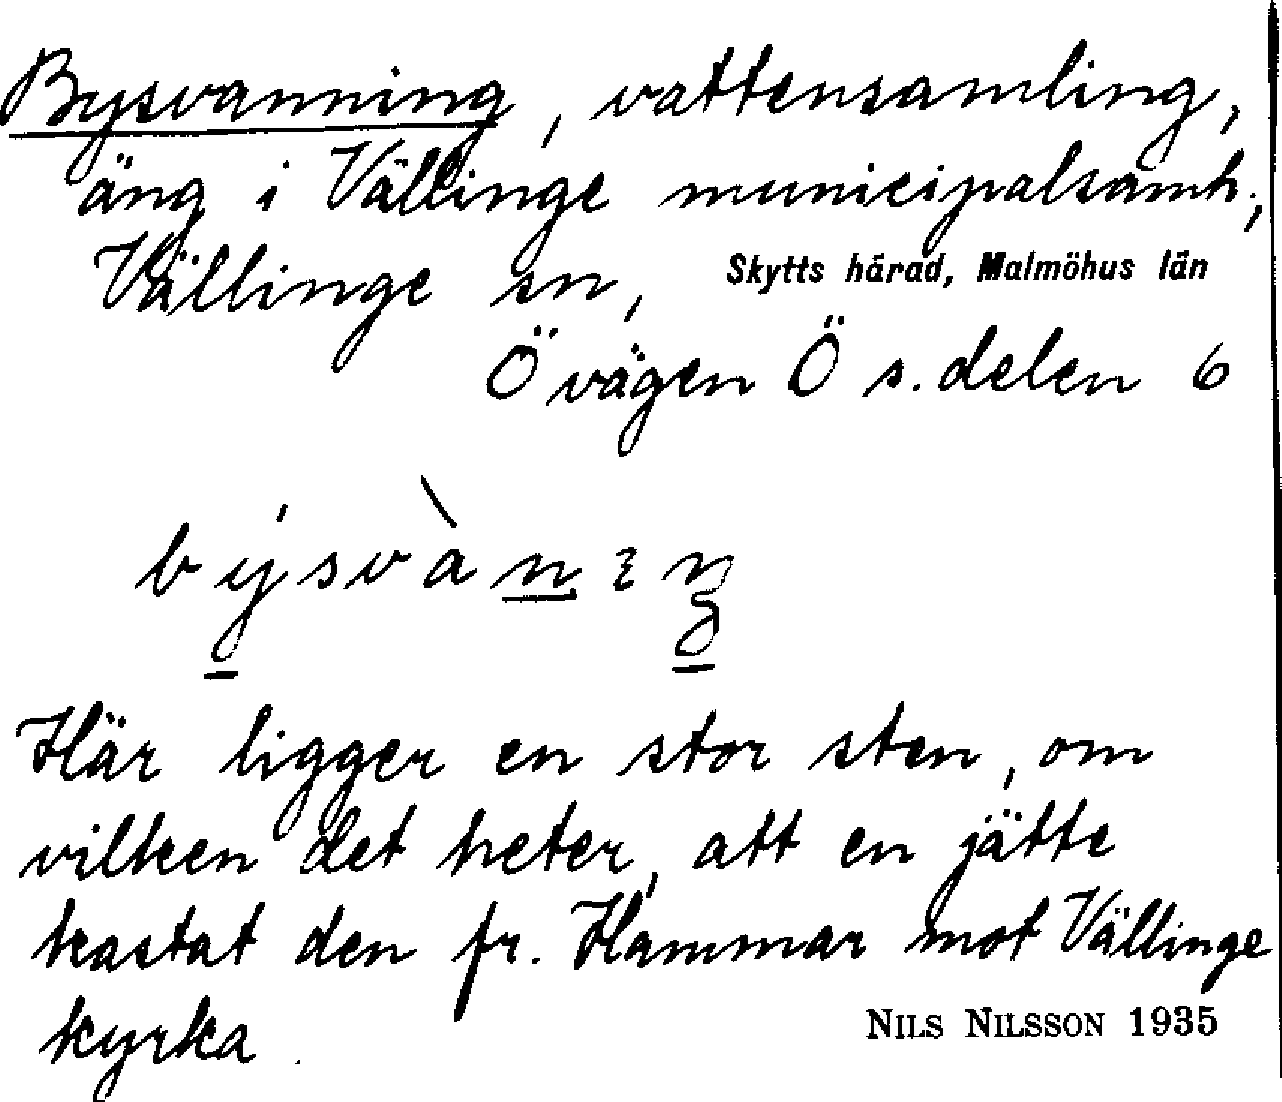 Bysvanning, vattensamling,
äng i Vällinge municipalsamh.,
Vällinge sn, Skytts härad, Malmöhus län
Ö vägen Ö s. delen 6
Här ligger en stor sten, om
vilken det heter, att en jätte
kastat den fr. Hammar mot Vällinge
kyrka.
NILS NILSSON 1935